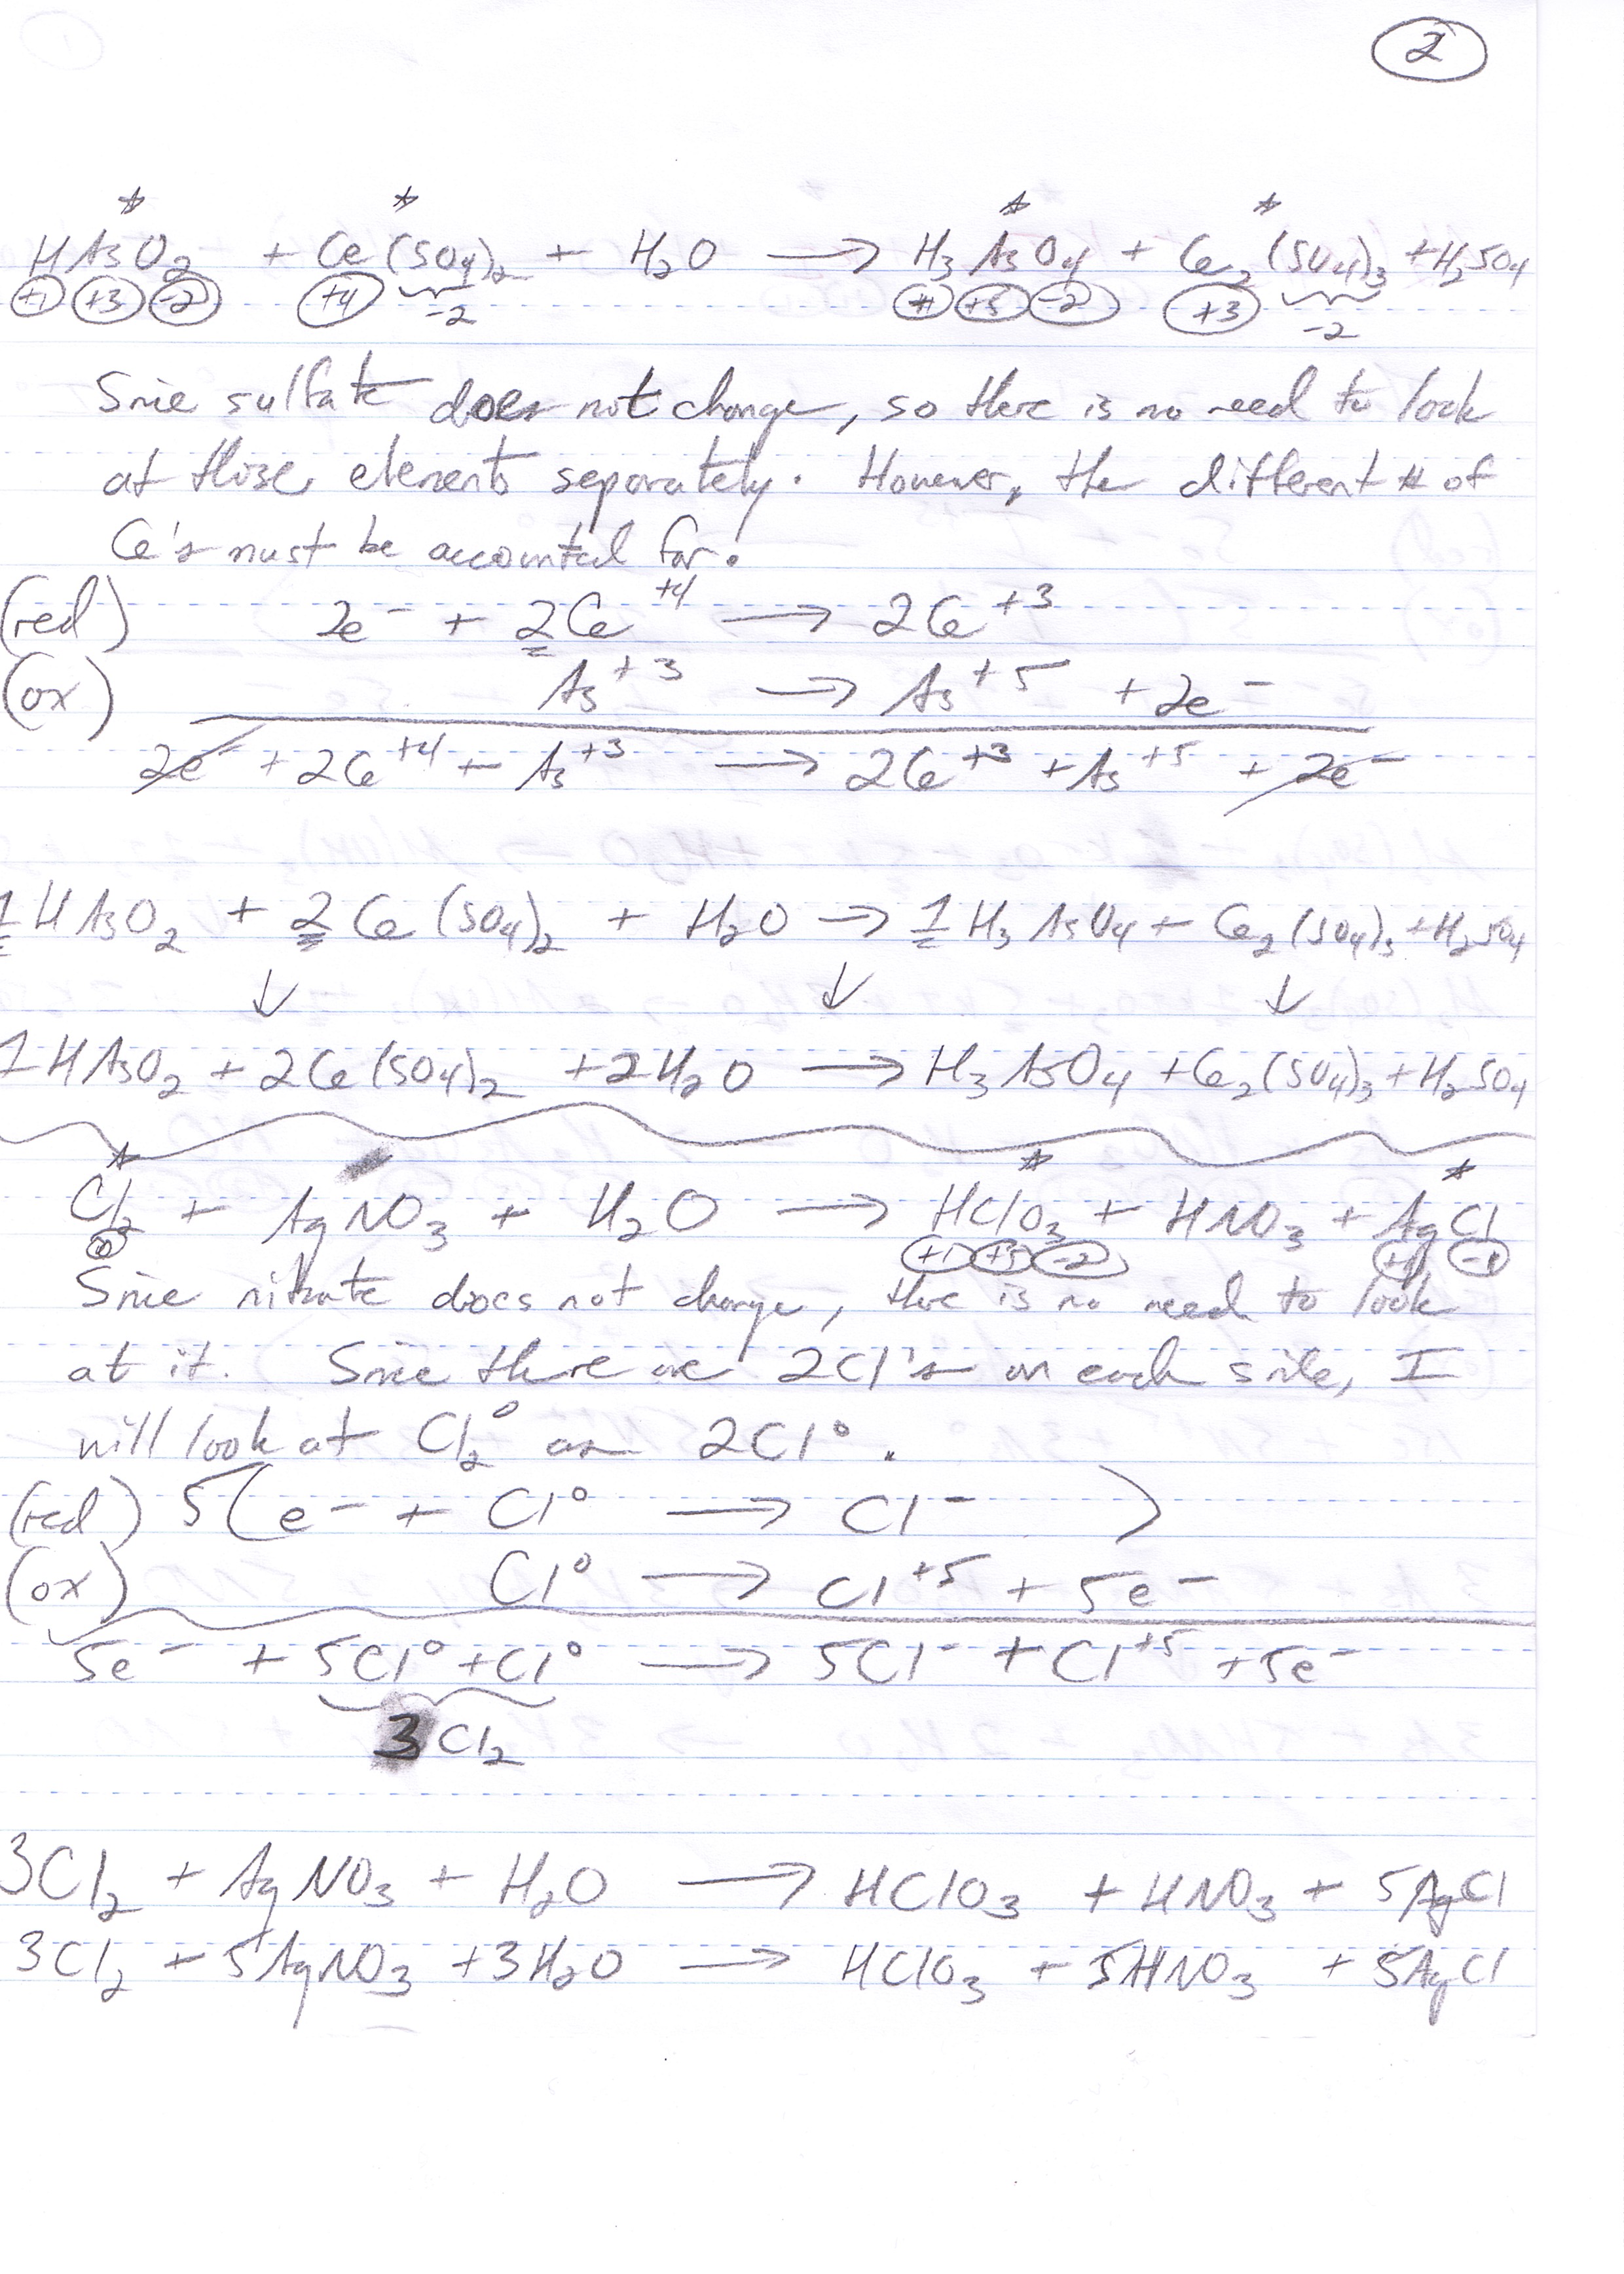 2
HAsO₂ + Ce(SO₄)₂ + H₂O → H₃AsO₄ + Ce₂(SO₄)₃ + H₂SO₄
+1 +3 -2 +4 -2 +1 +5 -2 +3 -2
Sine sulfate does not change, so there is no need to look
at those elements separately. However, the different # of
Ce's must be accounted for.
(red) 2e⁻ + 2Ce⁺⁴ → 2Ce⁺³
(ox) As⁺³ → As⁺⁵ + 2e⁻
2e⁻ + 2Ce⁺⁴ + As⁺³ → 2Ce⁺³ + As⁺⁵ + 2e⁻
1HAsO₂ + 2Ce(SO₄)₂ + H₂O → 1H₃AsO₄ + Ce₂(SO₄)₃ + H₂SO₄
↓ ↓ ↓
1HAsO₂ + 2Ce(SO₄)₂ + 2H₂O → H₃AsO₄ + Ce₂(SO₄)₃ + H₂SO₄
Cl₂ + AgNO₃ + H₂O → HClO₃ + HNO₃ + AgCl
0 +1 +5 -2 +1 -1
Sine nitrate does not change, there is no need to look
at it. Sine there are 2Cl's on each side, I
will look at Cl₂⁰ as 2Cl⁰.
(red) 5(e⁻ + Cl⁰ → Cl⁻)
(ox) Cl⁰ → Cl⁺⁵ + 5e⁻
5e⁻ + 5Cl⁰ + Cl⁰ → 5Cl⁻ + Cl⁺⁵ + 5e⁻
3Cl₂
3Cl₂ + AgNO₃ + H₂O → HClO₃ + HNO₃ + 5AgCl
3Cl₂ + 5AgNO₃ + 3H₂O → HClO₃ + 5HNO₃ + 5AgCl